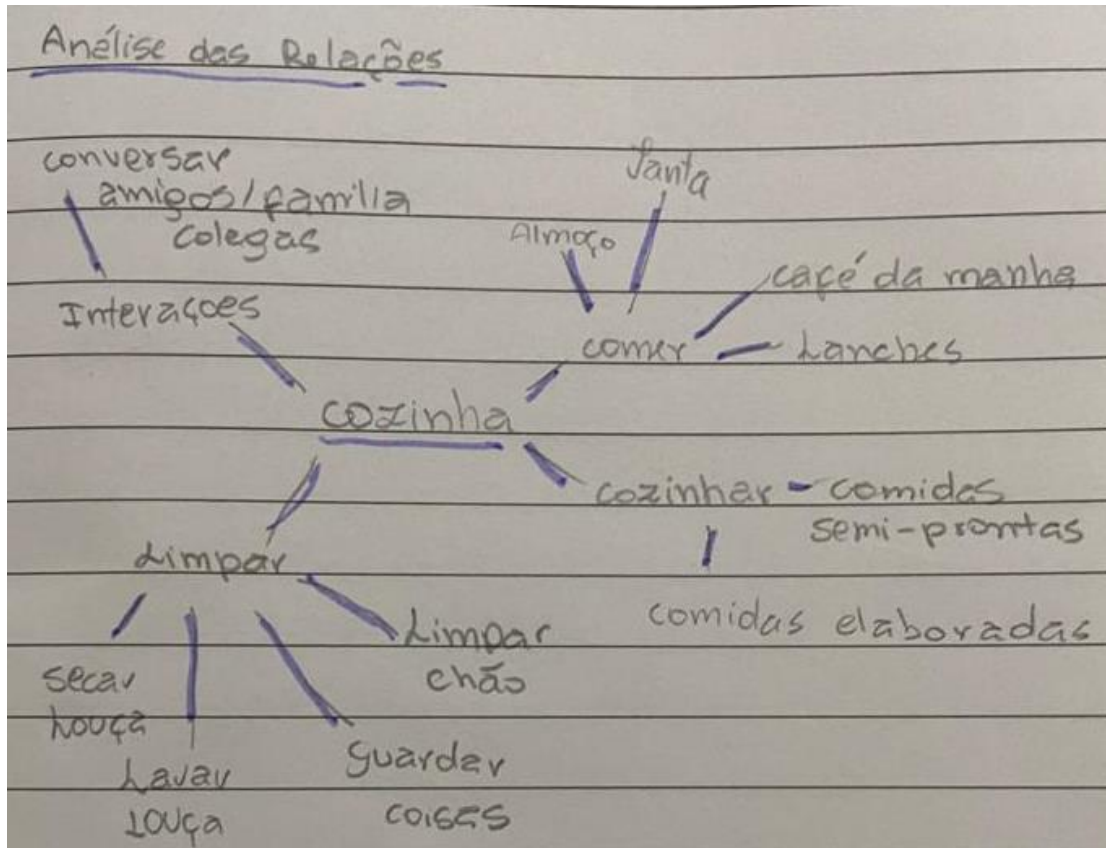 Análise das Relações
conversar
amigos/família
colegas
Interações
Janta
Almoço
café da manha
comer
Lanches
cozinha
cozinhar - comidas
semi-prontas
comidas elaboradas
Limpar
Limpar
chão
secar
Louça
Lavar
Louça
guardar
coisas